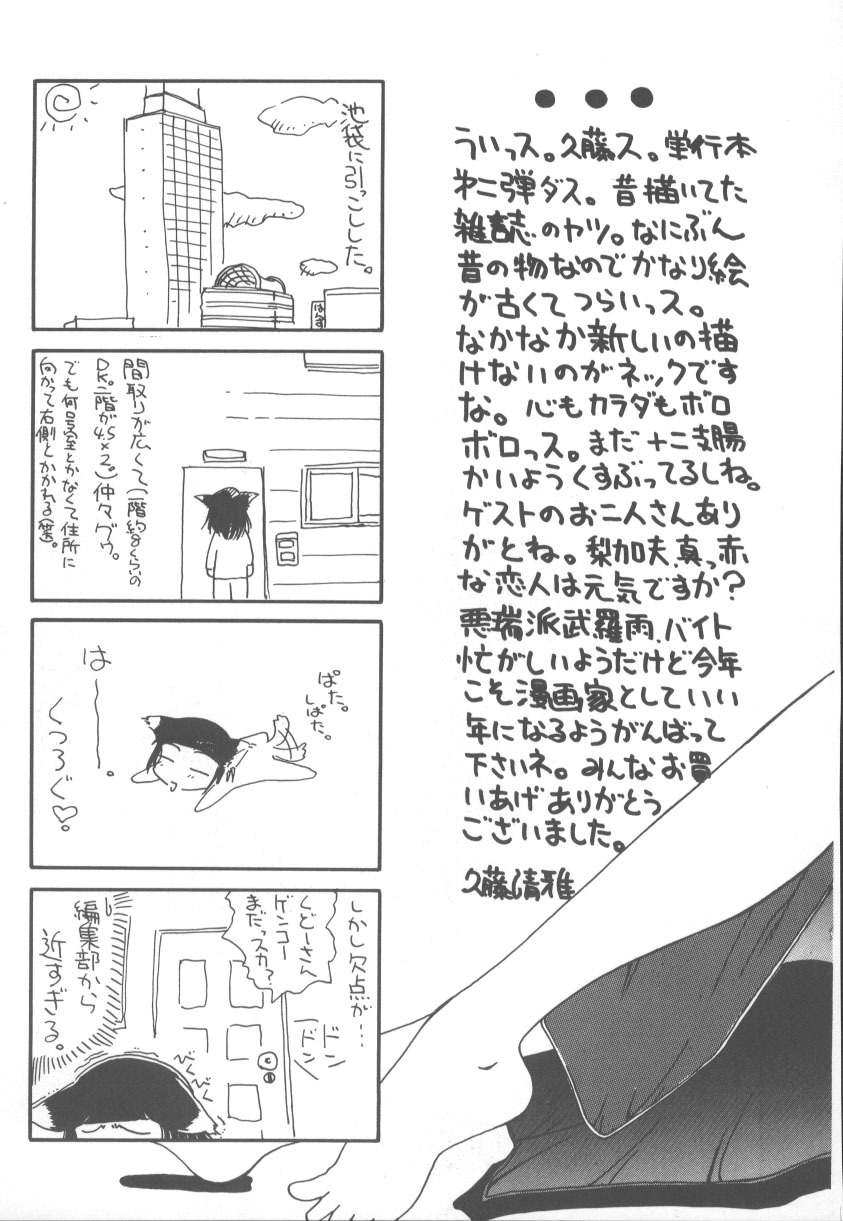 ういっス。久藤ス。単行本
オ二弾ダス。昔描いてた
雑誌のヤツ。なにぶん
昔の物なのでかなり絵
が古くてつらいっス。
なかなか新しいの描
けないのがネックです
な。心もカラダもボロ
ボロっス。まだ十二支腸
かいようくすぶってるしね。
ゲストのお二人さんあり
がとね。梨加夫、真っ赤
な恋人は元気ですか?
悪瑞派武羅雨、バイト
忙がしいようだけど今年
こそ漫画家としていい
年になるようがんばって
下さいネ。みんなお買
いあげありがとう
ございました。
久藤清雅
池袋に引っこしした。
はんず
間取りが広くて(一階約8くらいの
DK。二階が4.5×2。)仲々グゥ。
でも何号室とかなくて住所に
向かって右側とかかれる(笑)。
ぱた。
しぱた。
はーー。
くつろぐ♡。
しかし欠点が…
くどーさん
ゲンコー
まだっスカ?
ドン
ドン
編集部から
近すぎる。
びくびく